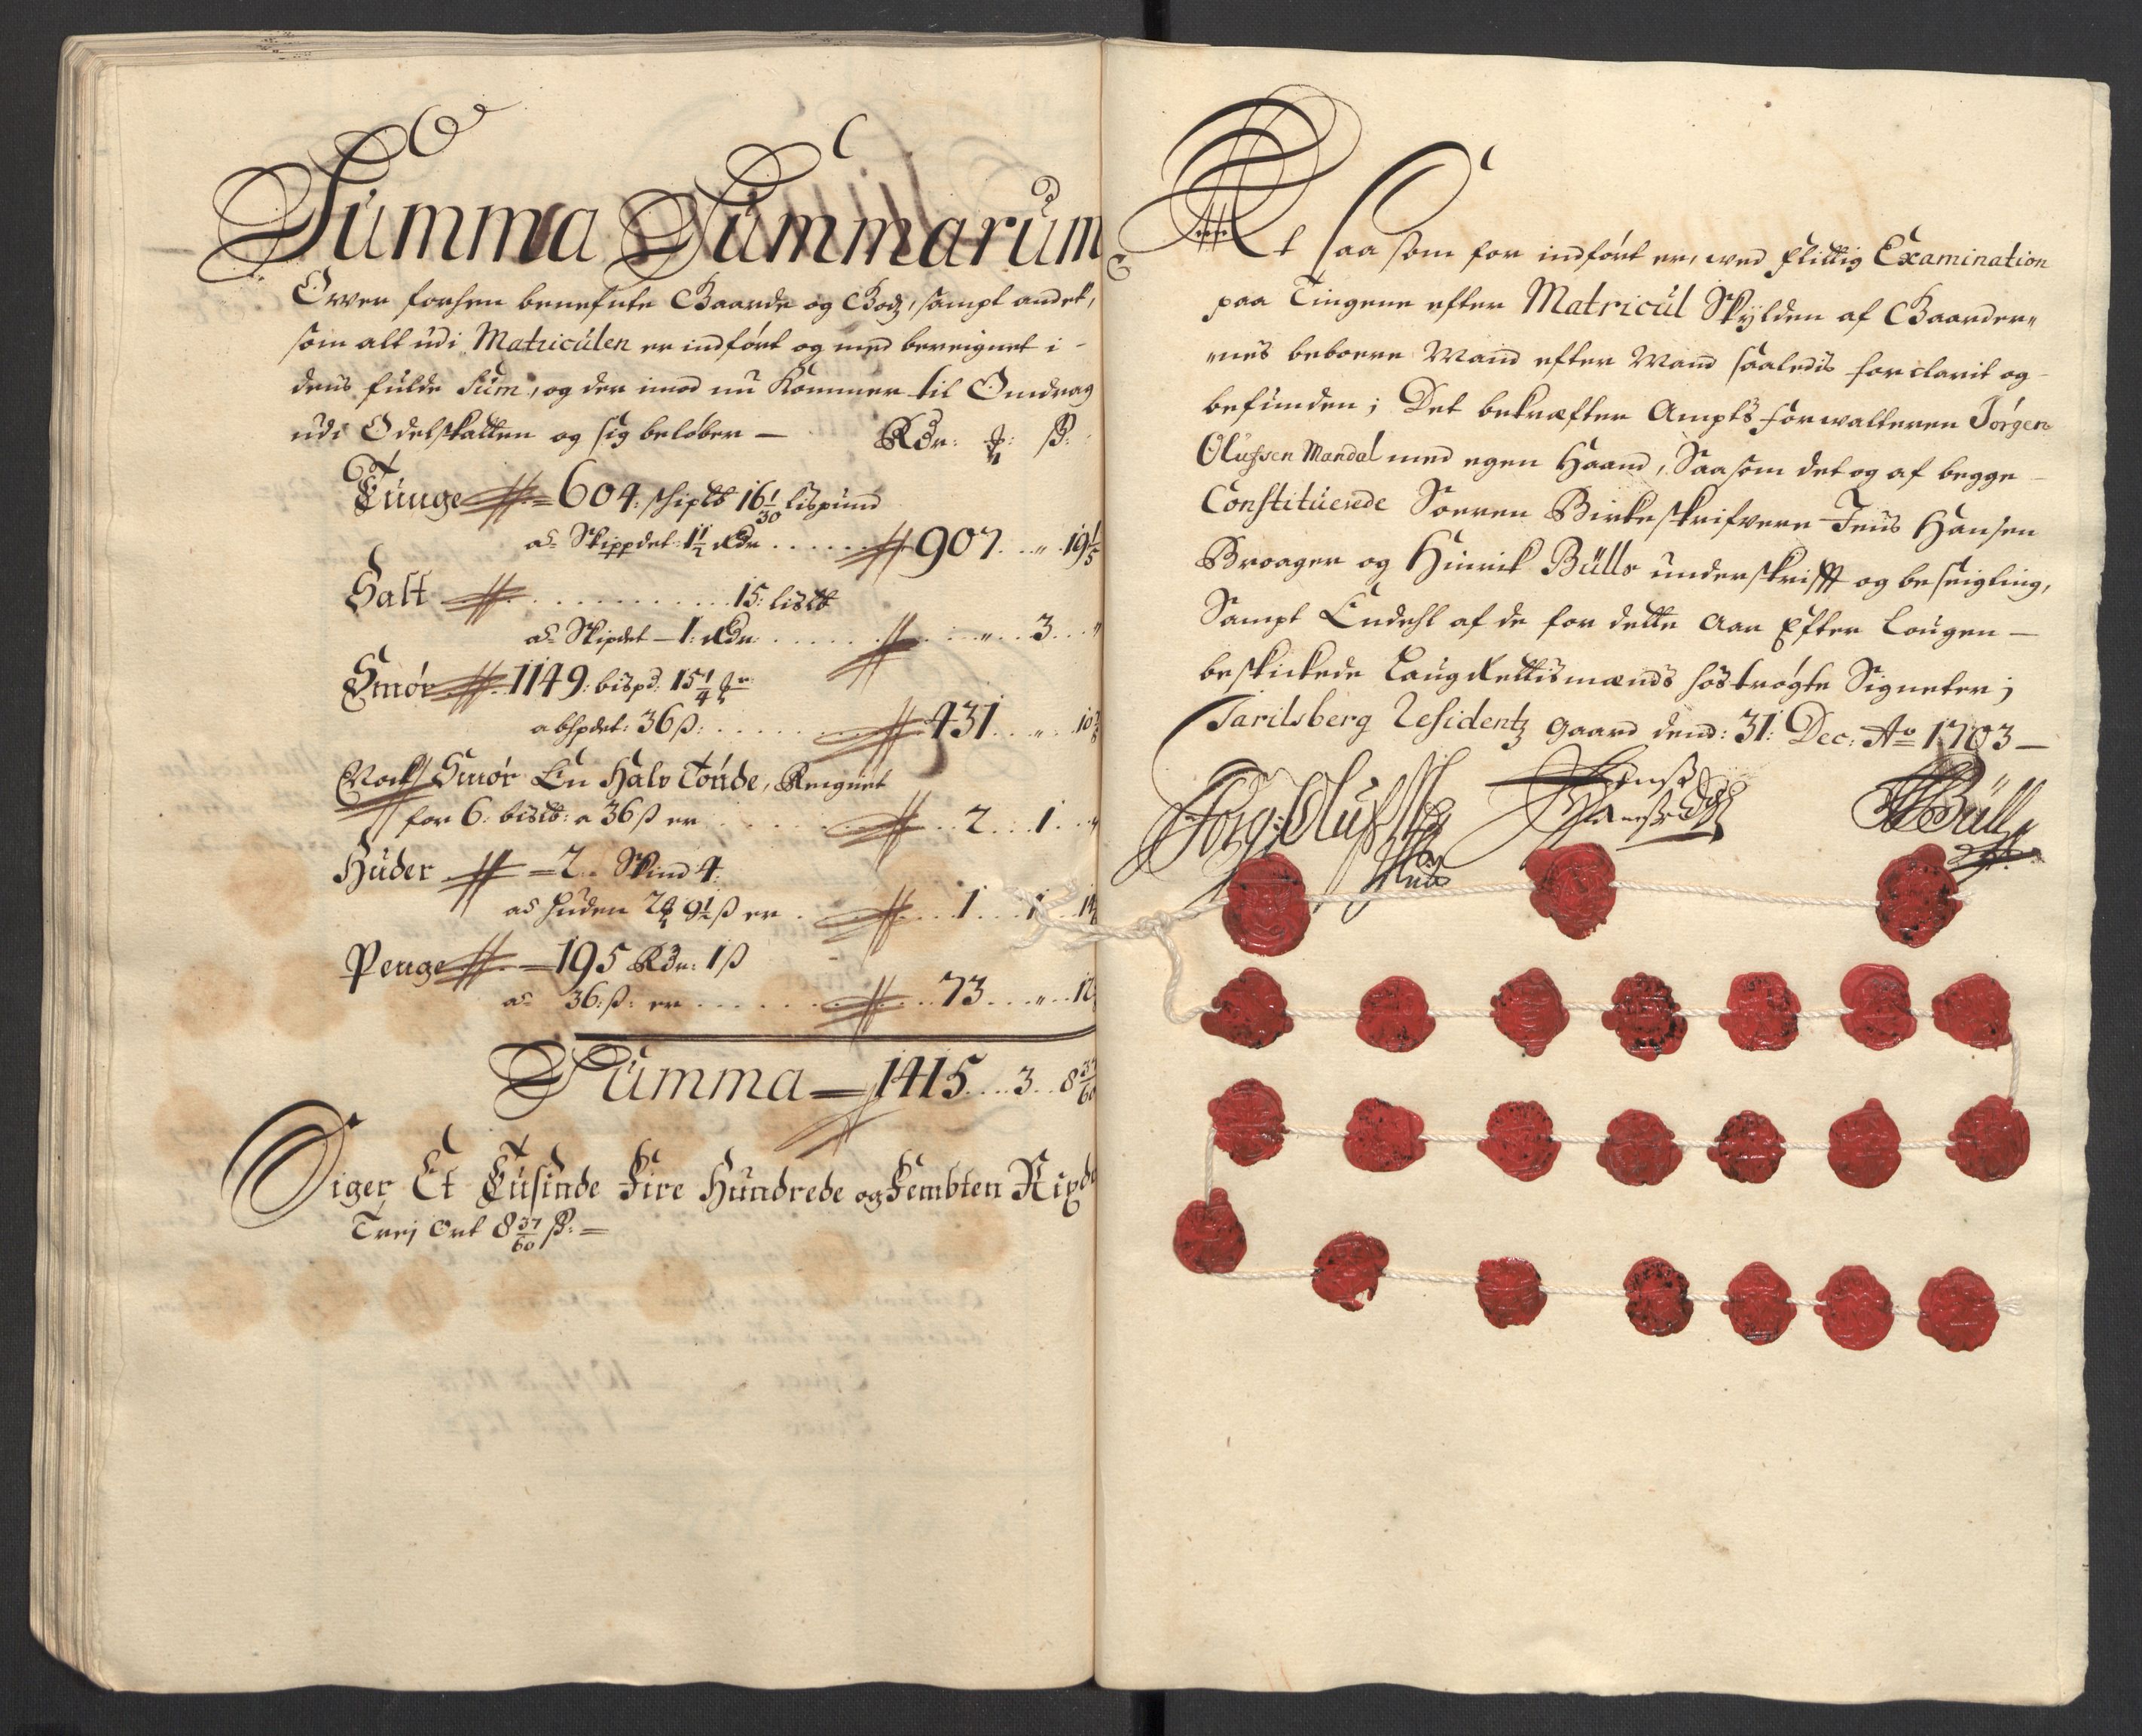 Summa Summarum
Ofver forhen benefnte Gaarde og Godz, sampt andet,
som alt udi Matriculen er indført og med bereignet i
deris fulde Sum, og der imod nu kommer til Omdrag
udi Odelskatten og sig beløber — Rdr: ß:
Tunge 604: skiplb 16 1/30 lispund
ad Skippdet: 1 1/2 Rdr ..... 907 . . „ . 19 1/5
Salt ........... 15: lislb
ad Skipdet — 1: Rdr ..... „ . . 3 . . „
Smør 1149: bispd: 15 1/4
a bispdet: 36 ß: ..... 431 . . „ . 10
Noch Smør En Halv Tønde, Reignet
for 6: bislb: a 36 ß er ..... 2 . . 1 . . „
Huder = 2 . . Skind 4:
ad Huden 2 9 1/2 ß er . . . 1 . . 1 . . 14
Penge = 195 Rdr: 1 ß
ad 36: ß: er ..... 73 . . „ . . 12
Summa — 1415 . . 3 . . 8 37/60
Siger Et Tusinde Fire Hundrede og Fembten Rixd
Trej Ort 8 37/60 ß: =
At saa som for indført er, ved flittig Examination
paa Tingene efter Matricul Skylden af Gaarder„
„nes beboere Mand efter Mand saaledis forclarit og
befunden; Det bekræfter Ampts forwalteren Jørgen
Olufsen Mandal med egen Haand, Saa som det og af begge
Constituerede Soeren Birkeskrifvere Jens Hansen
Broager og Hinrik Bülls underskrifft og beseigling,
Sampt Endehl af de for dette Aar Efter Lougen —
beskickede Laug Rettismænds hostrøgte Signeter;
Jarilsberg Residentz gaard dend: 31: Dec: Ao 1703 —
Jørg: Oluf
Jenß
Hanß
HBüll